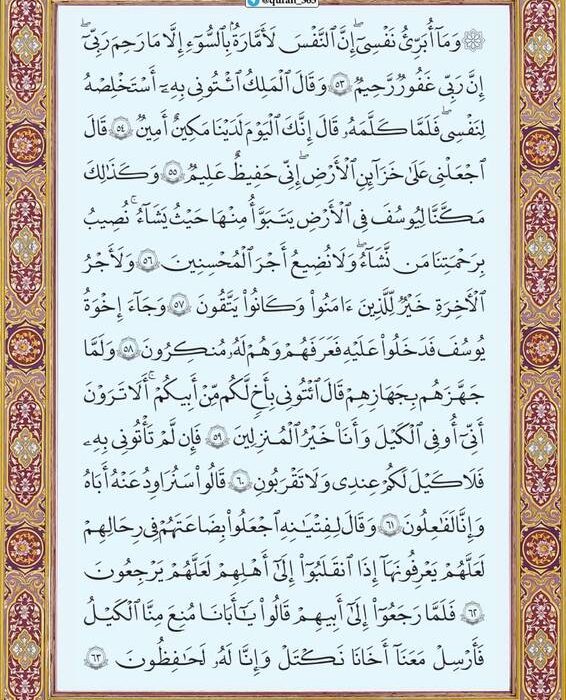 @quran_365
۞ وَمَآ أُبَرِّئُ نَفْسِىٓۚ إِنَّ ٱلنَّفْسَ لَأَمَّارَةُۢ بِٱلسُّوٓءِ إِلَّا مَا رَحِمَ رَبِّىٓۚ
إِنَّ رَبِّى غَفُورٌ رَّحِيمٌ ٥٣ وَقَالَ ٱلْمَلِكُ ٱئْتُونِى بِهِۦٓ أَسْتَخْلِصْهُ
لِنَفْسِىۖ فَلَمَّا كَلَّمَهُۥ قَالَ إِنَّكَ ٱلْيَوْمَ لَدَيْنَا مَكِينٌ أَمِينٌ ٥٤ قَالَ
ٱجْعَلْنِى عَلَىٰ خَزَآئِنِ ٱلْأَرْضِۖ إِنِّى حَفِيظٌ عَلِيمٌ ٥٥ وَكَذَٰلِكَ
مَكَّنَّا لِيُوسُفَ فِى ٱلْأَرْضِ يَتَبَوَّأُ مِنْهَا حَيْثُ يَشَآءُۚ نُصِيبُ
بِرَحْمَتِنَا مَن نَّشَآءُۖ وَلَا نُضِيعُ أَجْرَ ٱلْمُحْسِنِينَ ٥٦ وَلَأَجْرُ
ٱلْأَخِرَةِ خَيْرٌ لِّلَّذِينَ ءَامَنُوا۟ وَكَانُوا۟ يَتَّقُونَ ٥٧ وَجَآءَ إِخْوَةُ
يُوسُفَ فَدَخَلُوا۟ عَلَيْهِ فَعَرَفَهُمْ وَهُمْ لَهُۥ مُنكِرُونَ ٥٨ وَلَمَّا
جَهَّزَهُم بِجَهَازِهِمْ قَالَ ٱئْتُونِى بِأَخٍ لَّكُم مِّنْ أَبِيكُمْۚ أَلَا تَرَوْنَ
أَنِّىٓ أُوفِى ٱلْكَيْلَ وَأَنَا۠ خَيْرُ ٱلْمُنزِلِينَ ٥٩ فَإِن لَّمْ تَأْتُونِى بِهِۦ
فَلَا كَيْلَ لَكُمْ عِندِى وَلَا تَقْرَبُونِ ٦٠ قَالُوا۟ سَنُرَٰوِدُ عَنْهُ أَبَاهُ
وَإِنَّا لَفَٰعِلُونَ ٦١ وَقَالَ لِفِتْيَٰنِهِ ٱجْعَلُوا۟ بِضَٰعَتَهُمْ فِى رِحَالِهِمْ
لَعَلَّهُمْ يَعْرِفُونَهَآ إِذَا ٱنقَلَبُوٓا۟ إِلَىٰٓ أَهْلِهِمْ لَعَلَّهُمْ يَرْجِعُونَ
٦٢ فَلَمَّا رَجَعُوٓا۟ إِلَىٰٓ أَبِيهِمْ قَالُوا۟ يَٰٓأَبَانَا مُنِعَ مِنَّا ٱلْكَيْلُ
فَأَرْسِلْ مَعَنَآ أَخَانَا نَكْتَلْ وَإِنَّا لَهُۥ لَحَٰفِظُونَ ٦٣